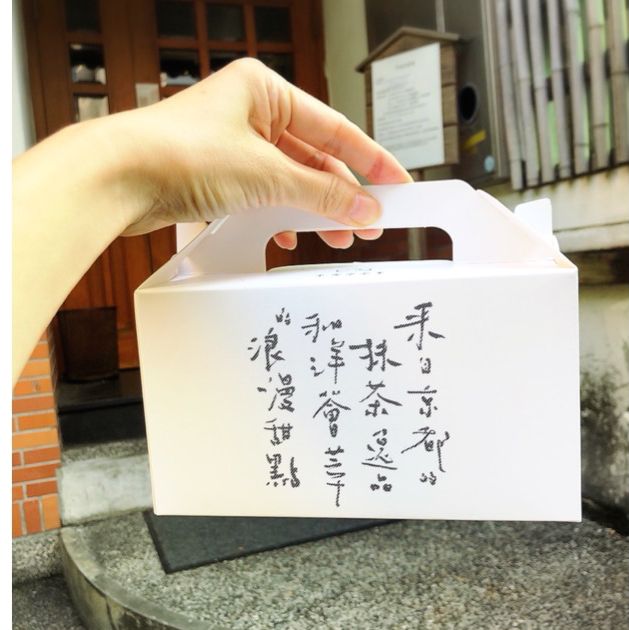 来自京都的
抹茶逸品
和洋薈萃
的浪漫甜點